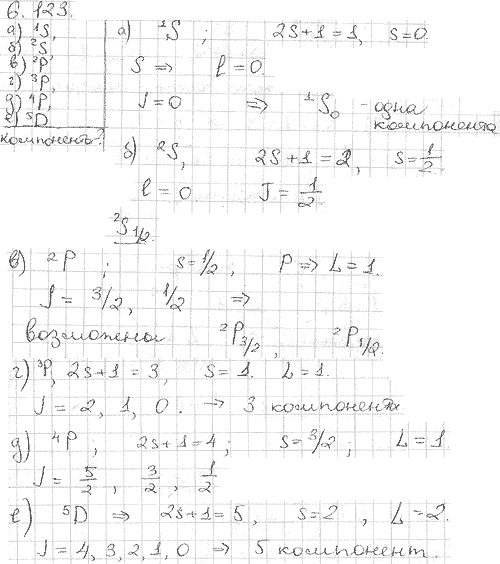 6.123.
а) ¹S,
б) ²S,
в) ²P,
г) ³P,
д) ⁴P,
е) ⁵D
компонента?
а) ¹S ; 2S+1=1, S=0.
S ⇒ l=0.
J=0 ⇒ ¹S₀ - одна
компонента
б) ²S, 2S+1=2, S=1/2
l=0 J=1/2
²S1/2
в) ²P ; S=1/2, P ⇒ L=1.
J=3/2, 1/2 ⇒
возможны ²P3/2, ²P1/2.
г) ³P, 2S+1=3, S=1. L=1.
J=2, 1, 0. → 3 компоненты
д) ⁴P, 2S+1=4; S=3/2; L=1
J=5/2, 3/2, 1/2
е) ⁵D ⇒ 2S+1=5, S=2, L=2.
J=4,3,2,1,0 ⇒ 5 компонент.